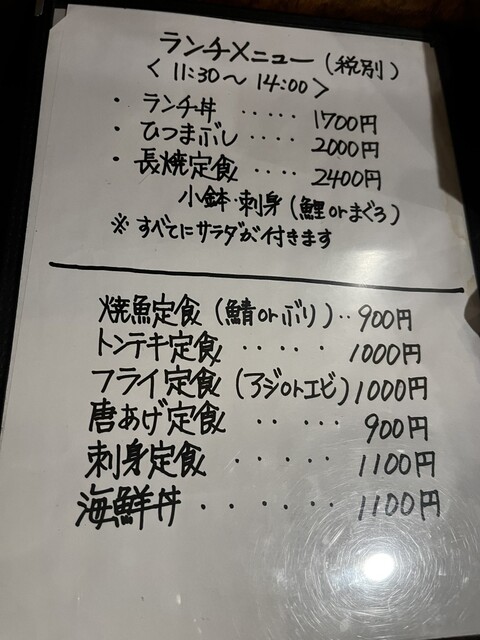 ランチメニュー(税別)
< 11:30〜14:00 >
・ランチ丼 ..... 1700円
・ひつまぶし .... 2000円
・長焼定食 .... 2400円
小鉢・刺身(鯉orまぐろ)
※すべてにサラダが付きます
焼魚定食(鯖orぶり)..900円
トンテキ定食 ..... 1000円
フライ定食(アジorエビ)1000円
唐あげ定食 .. ... 900円
刺身定食 ..... 1100円
海鮮丼 ...... 1100円